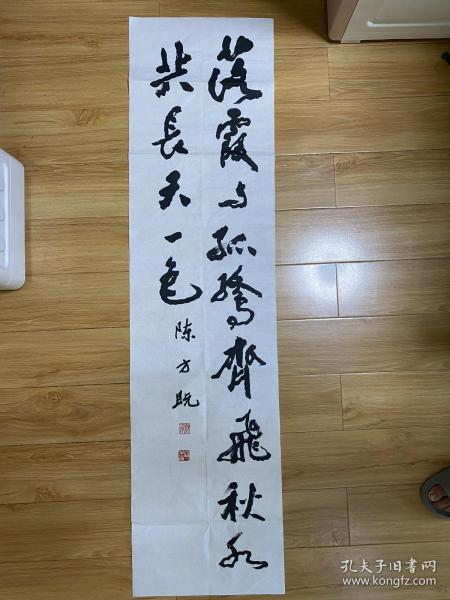 落霞与孤鹜齊飛秋水
共長天一色
陈方既
孔夫子旧书网
www.kongfz.com